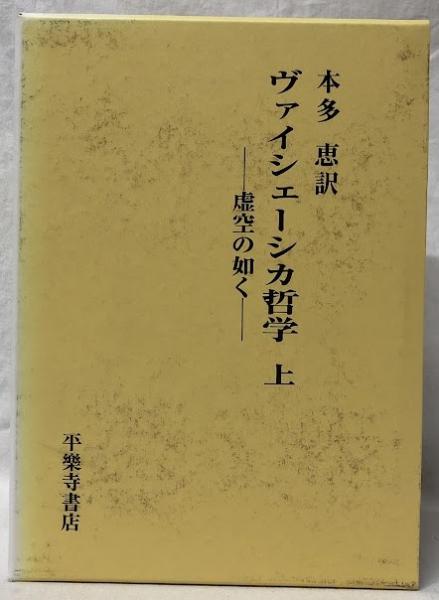 本多 恵訳
ヴァイシェーシカ哲学 上
――虚空の如く――
平樂寺書店